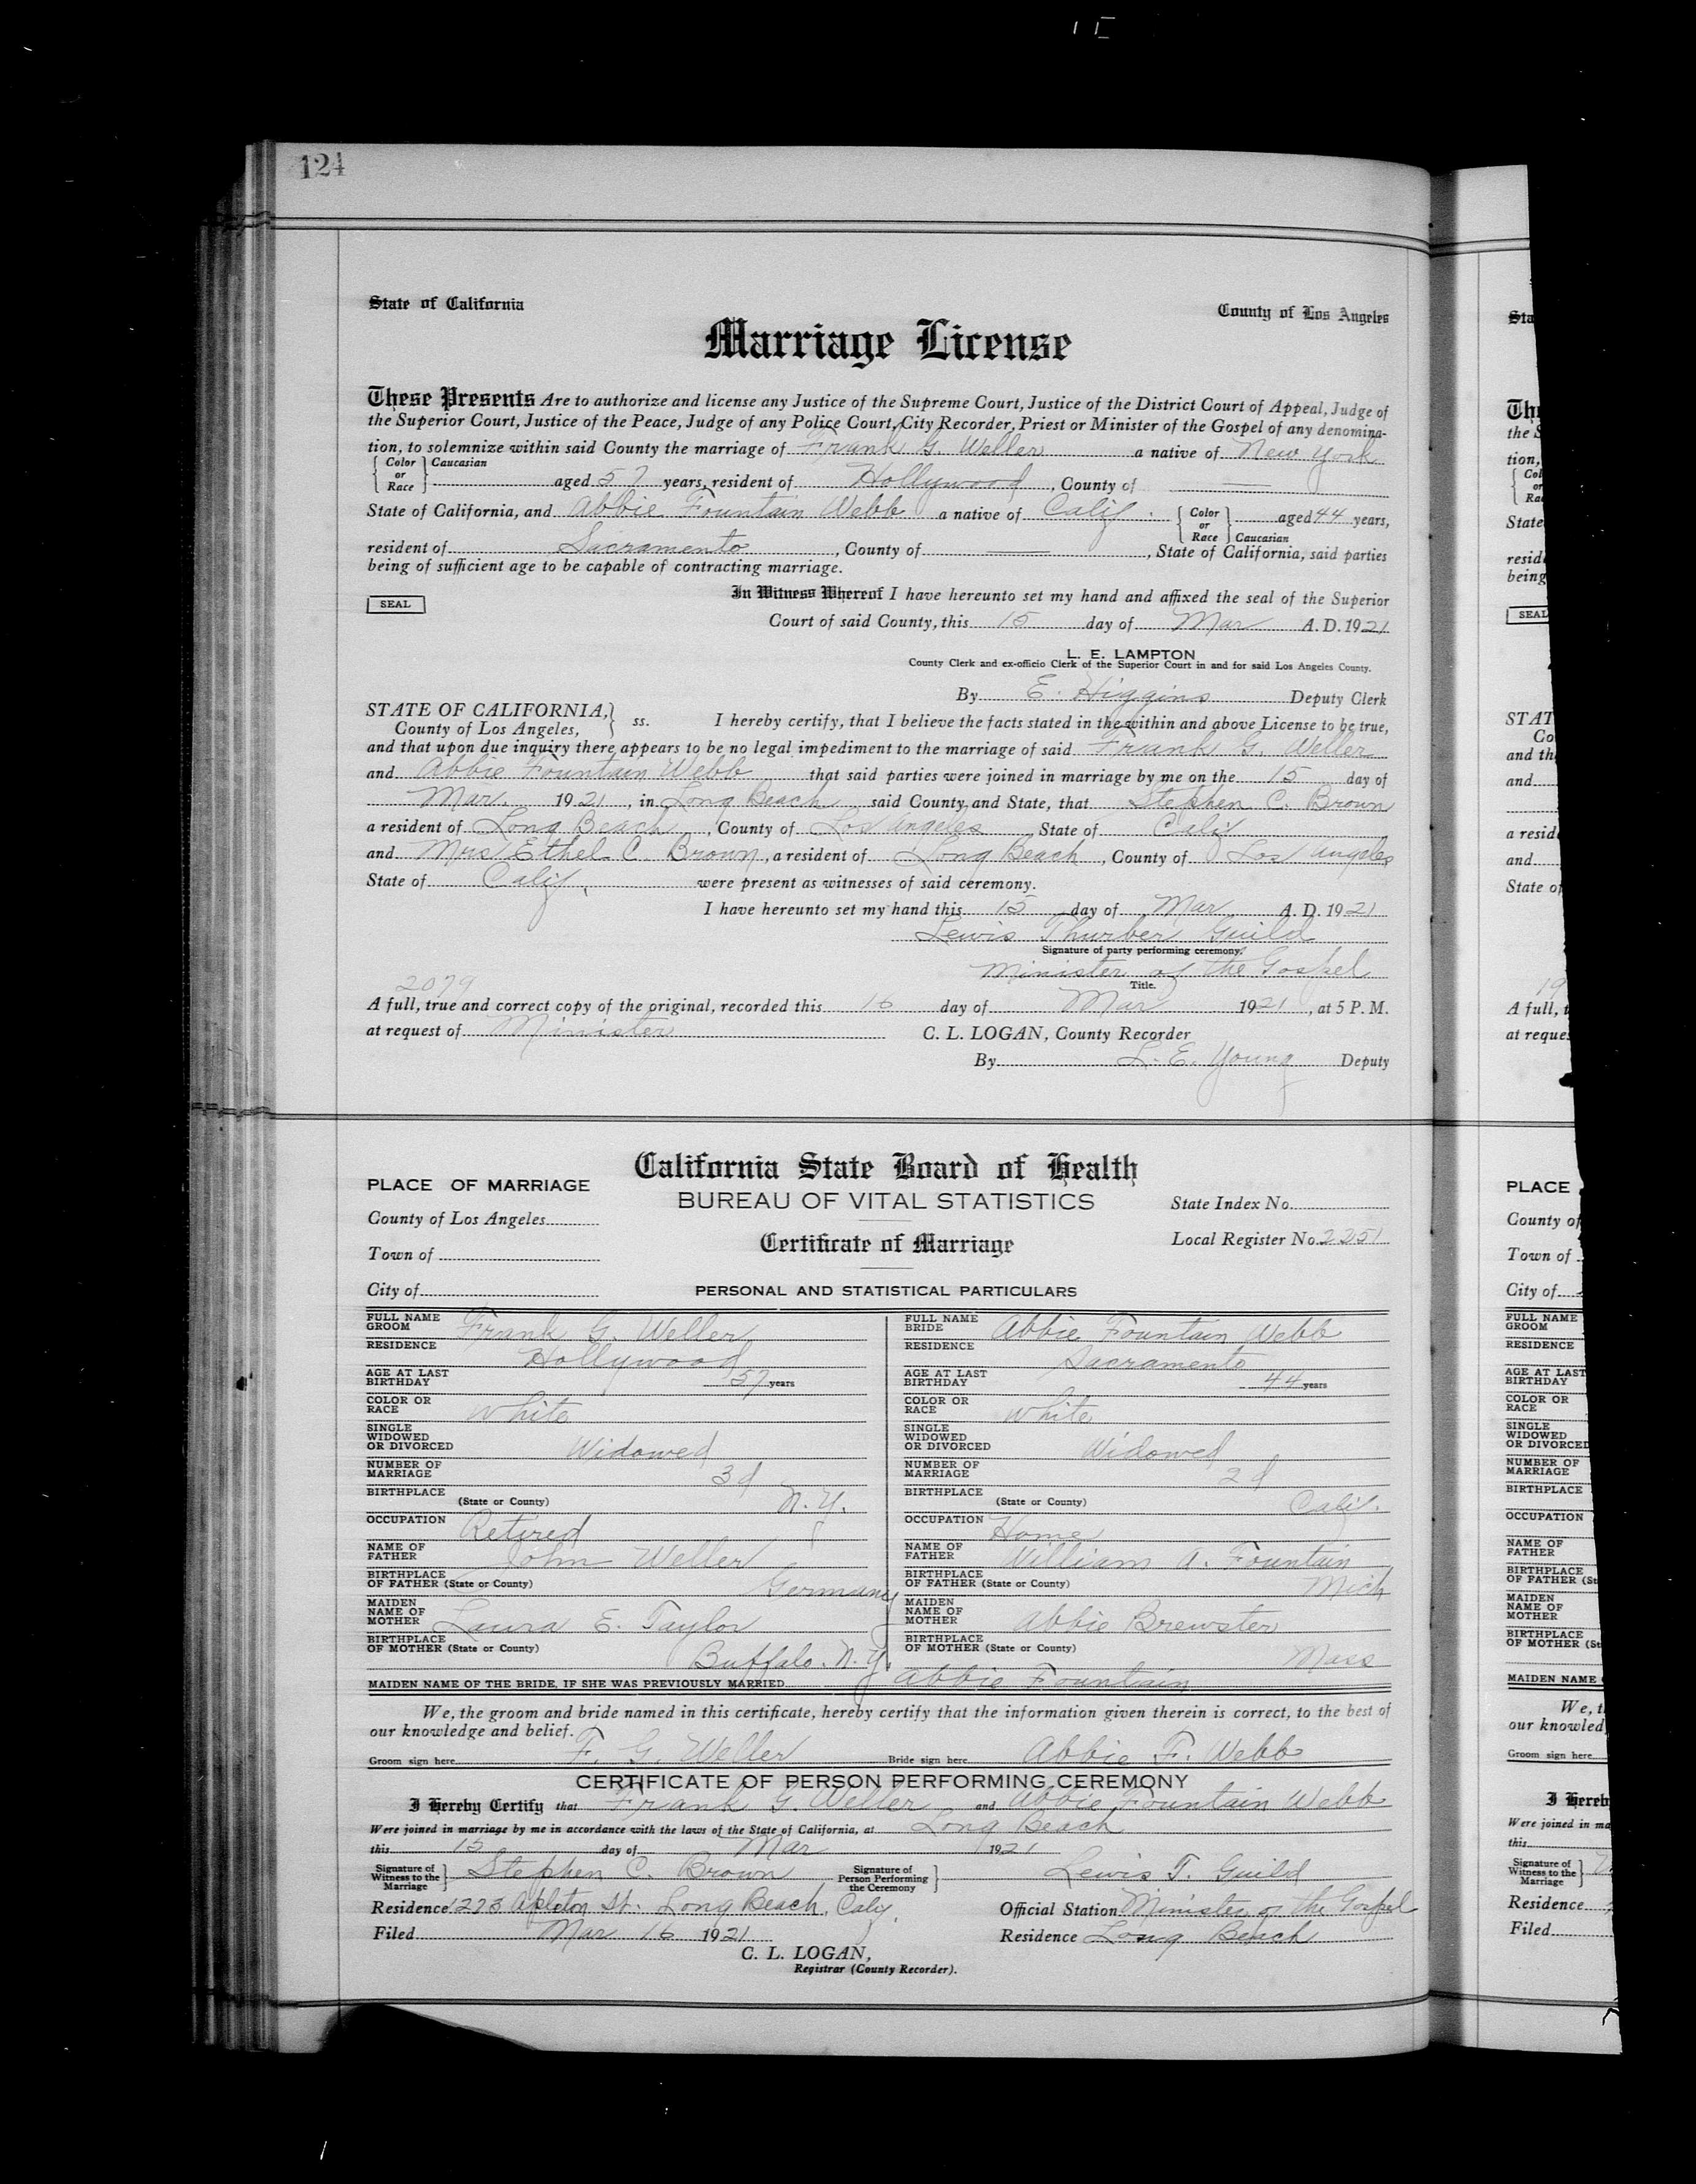 124
State of California
County of Los Angeles
Marriage License
These Presents Are to authorize and license any Justice of the Supreme Court, Justice of the District Court of Appeal, Judge of
the Superior Court, Justice of the Peace, Judge of any Police Court, City Recorder, Priest or Minister of the Gospel of any denomina-
tion, to solemnize within said County the marriage of Frank G. Weller a native of New York
Color or Race Caucasian aged 57 years, resident of Hollywood, County of —
State of California, and Abbie Fountain Webb a native of Calif. Color or Race Caucasian aged 44 years,
resident of Sacramento, County of —, State of California, said parties
being of sufficient age to be capable of contracting marriage.
In Witness Whereof I have hereunto set my hand and affixed the seal of the Superior
SEAL
Court of said County, this 15 day of Mar A. D. 1921
L. E. LAMPTON
County Clerk and ex-officio Clerk of the Superior Court in and for said Los Angeles County.
By E. Higgins Deputy Clerk
STATE OF CALIFORNIA,
County of Los Angeles, } ss. I hereby certify, that I believe the facts stated in the within and above License to be true,
and that upon due inquiry there appears to be no legal impediment to the marriage of said Frank G. Weller
and Abbie Fountain Webb that said parties were joined in marriage by me on the 15 day of
Mar. 1921, in Long Beach said County and State, that Stephen C. Brown
a resident of Long Beach, County of Los Angeles State of Calif
and Mrs Ethel C Brown, a resident of Long Beach, County of Los Angeles
State of Calif, were present as witnesses of said ceremony.
I have hereunto set my hand this 15 day of Mar A. D. 1921
Lewis Thurber Guild
Signature of party performing ceremony.
Minister of the Gospel
Title.
2079
A full, true and correct copy of the original, recorded this 16 day of Mar 1921, at 5 P. M.
at request of Minister C. L. LOGAN, County Recorder
By L. E. Young Deputy
California State Board of Health
PLACE OF MARRIAGE
BUREAU OF VITAL STATISTICS
State Index No.
County of Los Angeles
Certificate of Marriage
Local Register No. 2251
Town of
City of
PERSONAL AND STATISTICAL PARTICULARS
FULL NAME GROOM Frank G. Weller
RESIDENCE Hollywood
AGE AT LAST BIRTHDAY 57 years
COLOR OR RACE White
SINGLE WIDOWED OR DIVORCED Widowed
NUMBER OF MARRIAGE 3d
BIRTHPLACE (State or County) N. Y.
OCCUPATION Retired
NAME OF FATHER John Weller
BIRTHPLACE OF FATHER (State or County) Germany
MAIDEN NAME OF MOTHER Laura E. Taylor
BIRTHPLACE OF MOTHER (State or County) Buffalo. N. Y.
FULL NAME BRIDE Abbie Fountain Webb
RESIDENCE Sacramento
AGE AT LAST BIRTHDAY 44 years
COLOR OR RACE White
SINGLE WIDOWED OR DIVORCED Widowed
NUMBER OF MARRIAGE 2d
BIRTHPLACE (State or County) Calif.
OCCUPATION Home
NAME OF FATHER William A. Fountain
BIRTHPLACE OF FATHER (State or County) Mich
MAIDEN NAME OF MOTHER Abbie Brewster
BIRTHPLACE OF MOTHER (State or County) Mass
MAIDEN NAME OF THE BRIDE, IF SHE WAS PREVIOUSLY MARRIED Abbie Fountain
We, the groom and bride named in this certificate, hereby certify that the information given therein is correct, to the best of
our knowledge and belief.
Groom sign here F. G. Weller Bride sign here Abbie F. Webb
CERTIFICATE OF PERSON PERFORMING CEREMONY
I Hereby Certify that Frank G. Weller and Abbie Fountain Webb
Were joined in marriage by me in accordance with the laws of the State of California, at Long Beach
this 15 day of Mar 1921
Signature of Witness to the Marriage } Stephen C. Brown Signature of Person Performing the Ceremony } Lewis T. Guild
Residence 1223 Apleton St. Long Beach, Calif. Official Station Minister of the Gospel
Filed Mar 16 1921 Residence Long Beach
C. L. LOGAN,
Registrar (County Recorder).